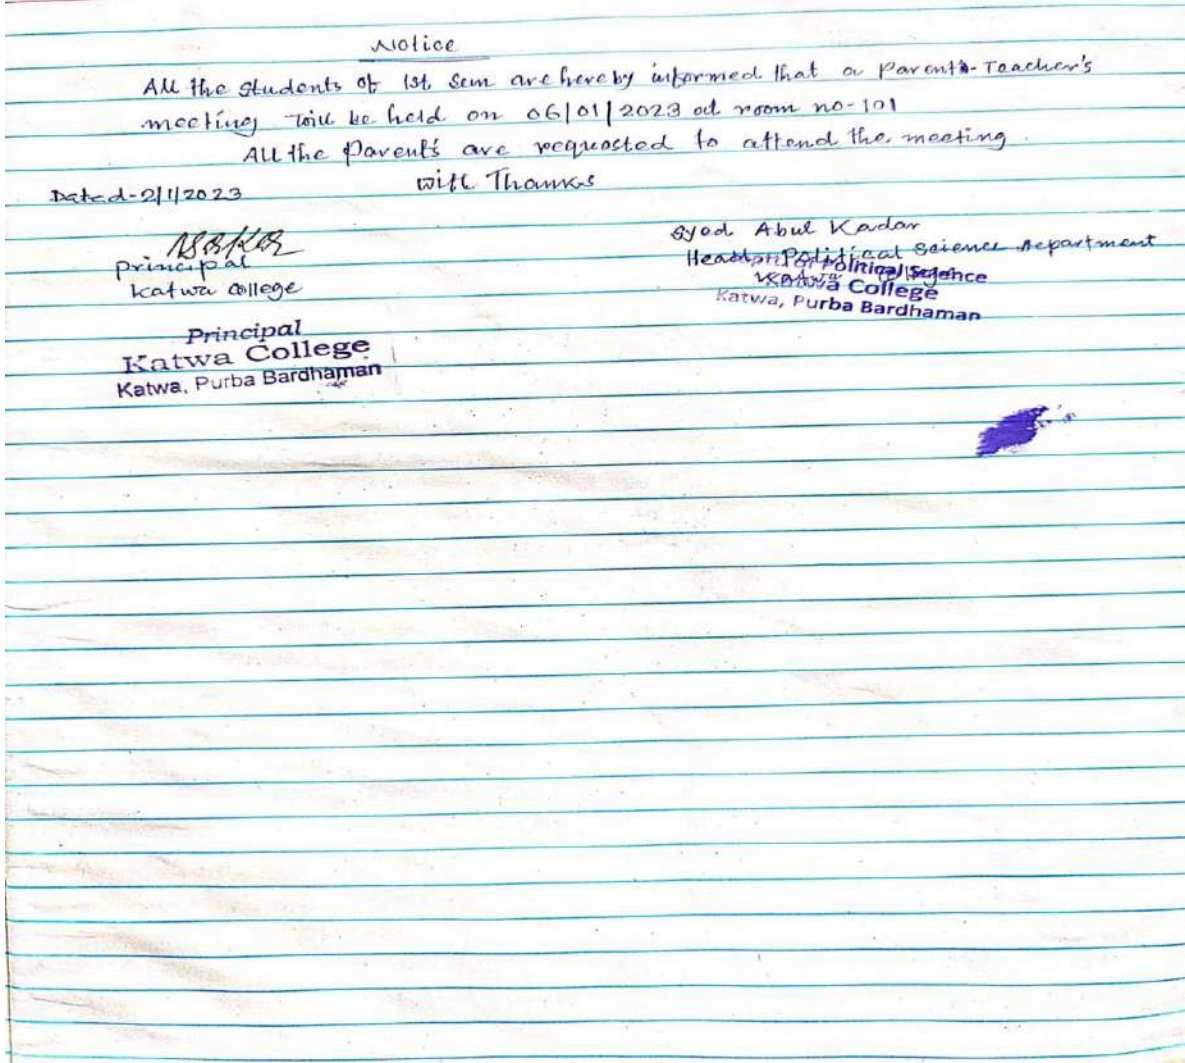 Notice
All the students of 1st Sem are hereby informed that a Parent-Teacher's
meeting will be held on 06/01/2023 at room no-101
All the Parent's are requested to attend the meeting.
With Thanks
Dated-2/1/2023
Principal
Katwa College
Principal
Katwa College
Katwa, Purba Bardhaman
Syed Abul Kadar
Head Political Science Department
Katwa College
Political Science
Katwa College
Katwa, Purba Bardhaman